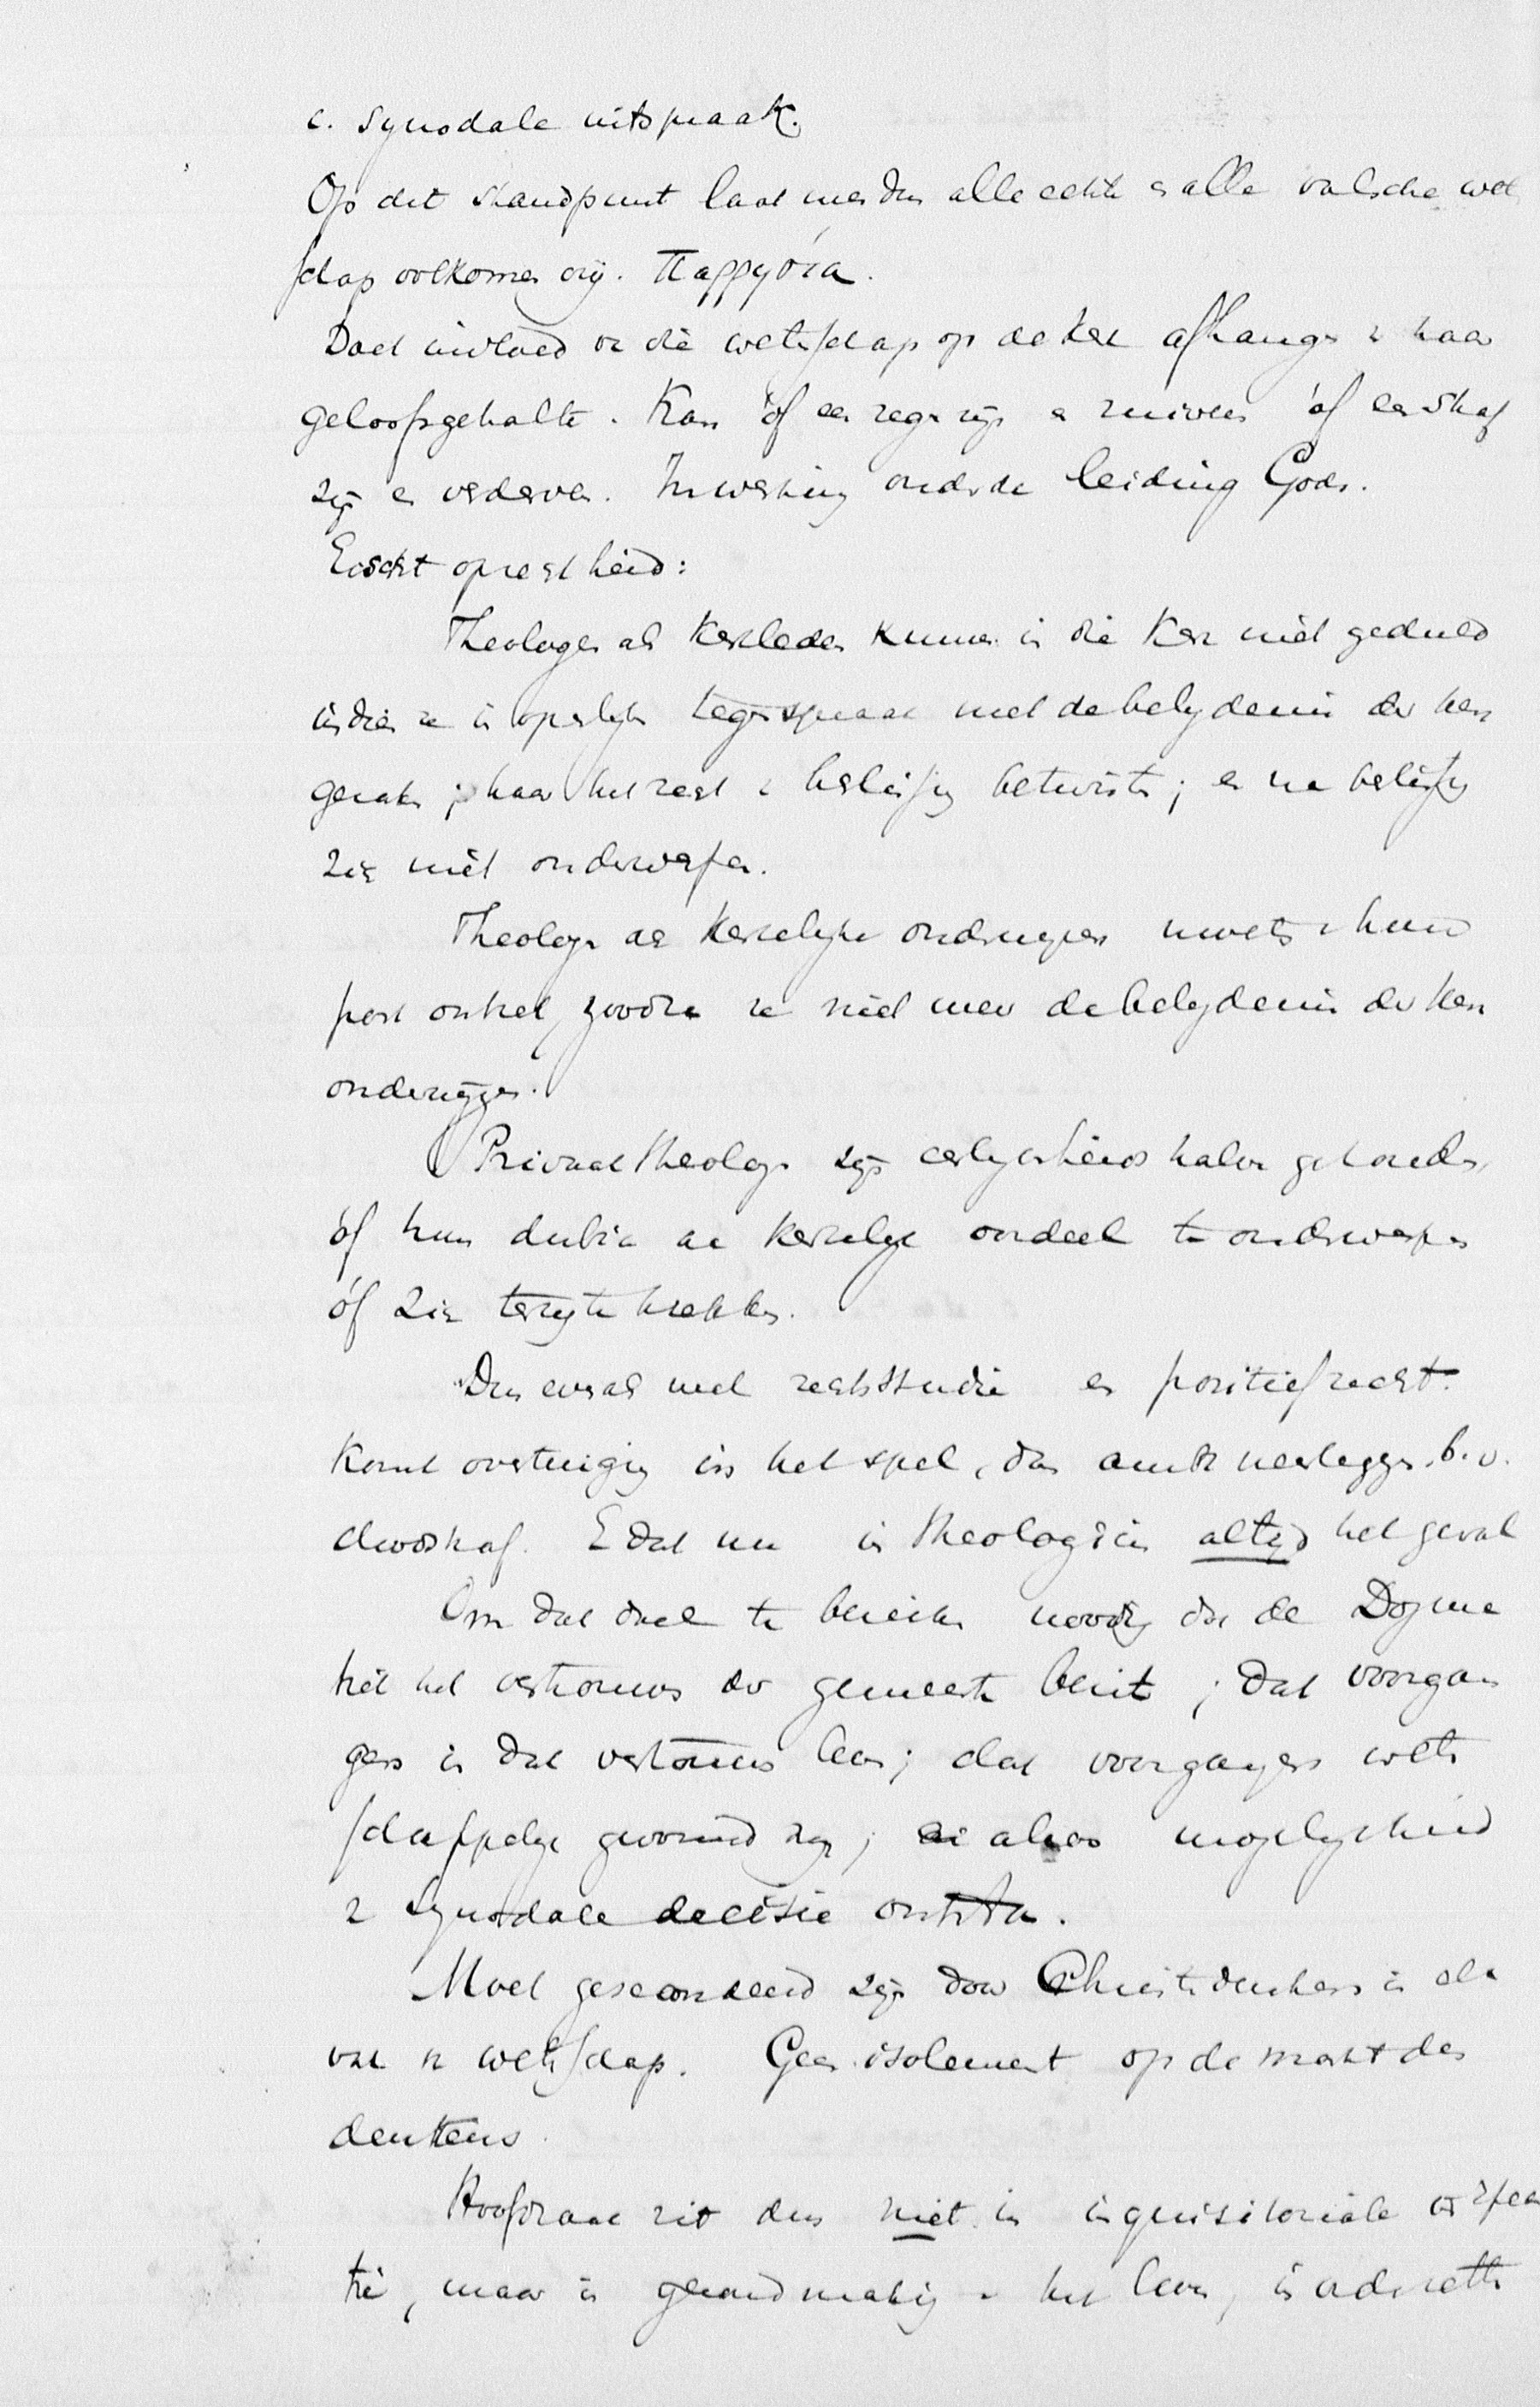 c. Synodale uitspraak.
Op dit standpunt laat men dus alle echte en alle valsche wet
schap volkomen vrij. Παρρησία.
Doch invloed v. die wetschap op de kerk afhangen v haar
geloofsgehalte. Kan òf een zegen zijn en zuiveren òf een straf
zijn en verderven. Inwerking onder de leiding Gods.
Eischt oprechtheid:
Theologen als kerkleden kunnen in die kerk niet geduld
indien ze in openlijke tegenspraak met de belydenis der kerk
geraken; haar het recht v beslissing betwisten; en na beslissing
zich niet onderwerpen.
Theologen als kerkelyke onderwyzers moeten v hun
post ontzet, zoodra ze niet meer de belydenis der kerk
onderwijzen.
Privaat theologen zijn eerlykheids halve gehouden,
òf hun dubia aan kerkelyk oordeel te onderwerpen
òf zich terug te trekken.
Dus evenals met rechtsstudie en positief recht.
Komt overtuiging in het spel, dan ambt neerleggen. b.v.
doodstraf. En dat nu in theologicis altijd het geval
Om dat doel te bereiken noodig dat de Dogma
tiek het vertrouwen der gemeente bezit; dat voorgan
gers in dat vertrouwen leven; dat voorgangers weten
schappelyk gevormd zijn; alzoo mogelykheid
v Synodale decisie ontsta.
Moet gesecondeerd zijn door Christ. denkers in elk
vak v wetschap. Geen isolement op de markt des
denkens.
Hoofdzaak zit dus niet in inquisitoriale
tie, maar in gezondmaking v het leven, in